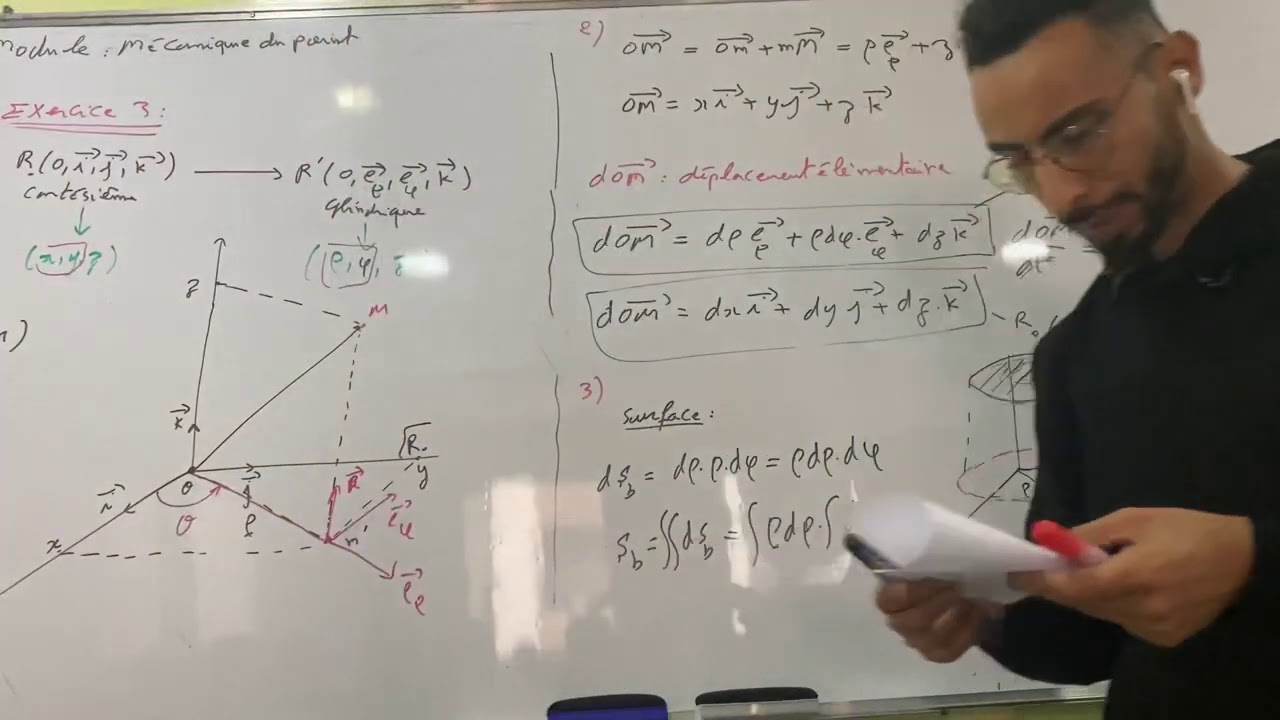 module : mécanique du point
Exercice 3 :
R(O, i⃗, j⃗, k⃗) ⟶ R'(O, e⃗ρ, e⃗φ, k⃗)
cartésienne
cylindrique
(x, y, z)
(ρ, φ,
z
M
k⃗
R₀
y
j⃗
i⃗
o
θ
ρ
x
k⃗
e⃗φ
m
e⃗ρ
2)
OM⃗ = Om⃗ + mM⃗ = ρ e⃗ρ + z
OM⃗ = x i⃗ + y j⃗ + z k⃗
dOM⃗ : déplacement élémentaire
dOM⃗ = dρ e⃗ρ + ρdφ . e⃗φ + dz k⃗
dOM⃗ = dx i⃗ + dy j⃗ + dz . k⃗
dOM⃗
dt
=
3)
surface :
dS_b = dρ . ρ . dφ = ρdρ . dφ
S_b = ∬ dS_b = ∫ρdρ . ∫
ρ